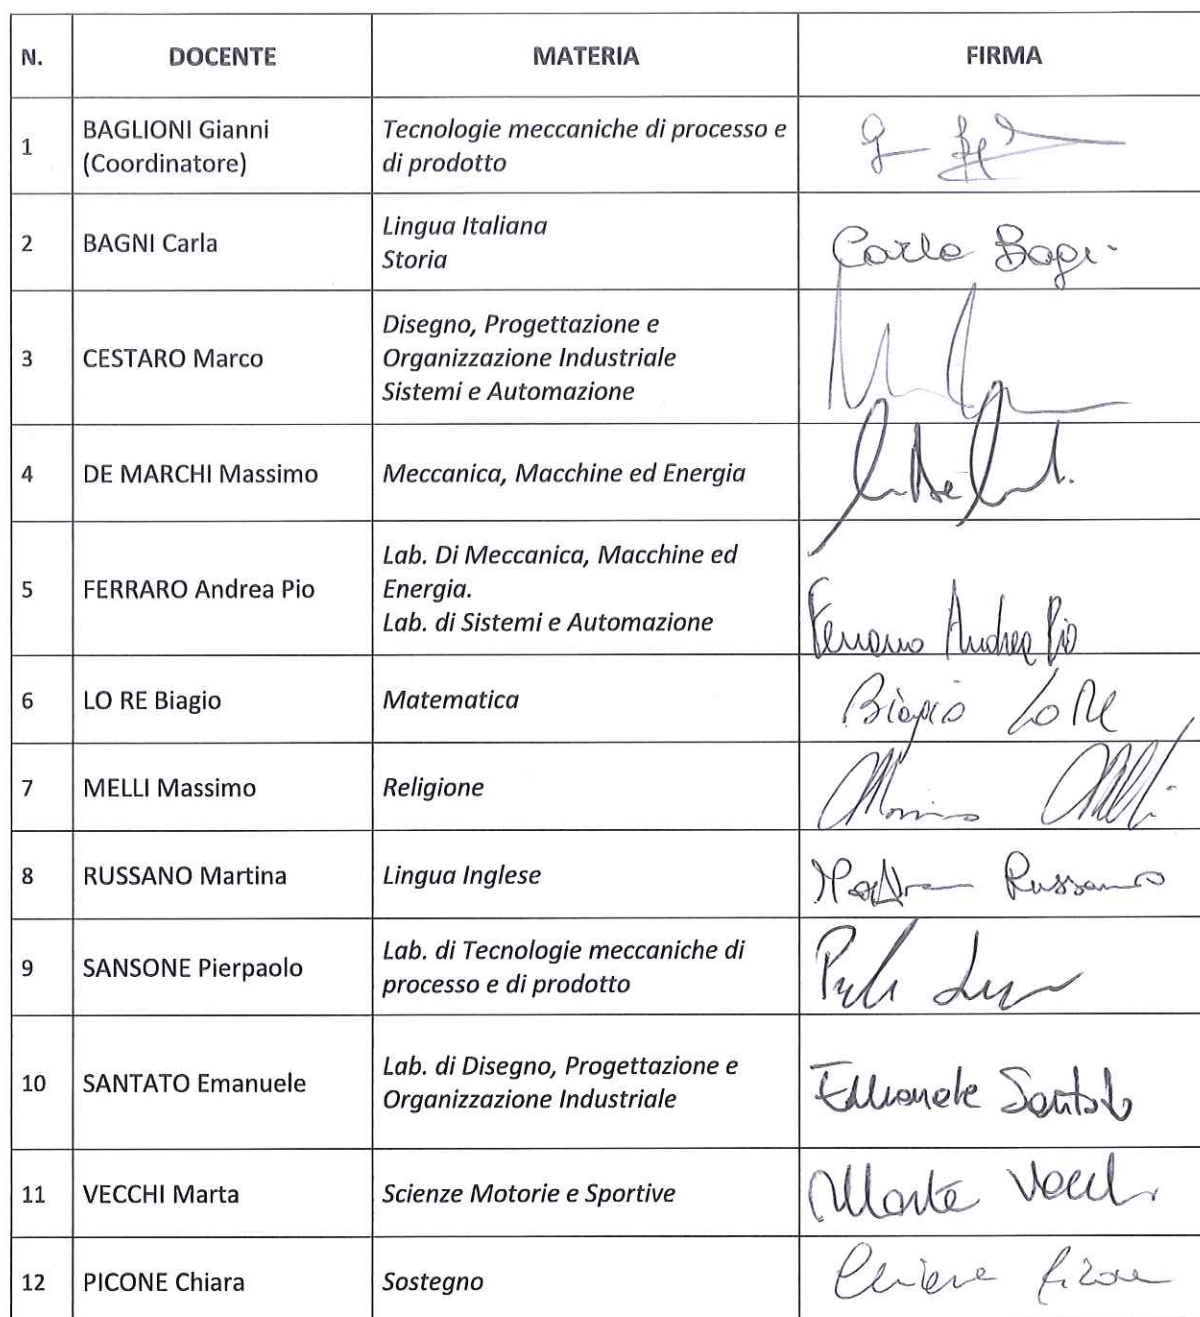 N. DOCENTE MATERIA FIRMA
1 BAGLIONI Gianni Tecnologie meccaniche di processo e
(Coordinatore) di prodotto
2 BAGNI Carla Lingua Italiana Carla Bagni
Storia
3 CESTARO Marco Disegno, Progettazione e
Organizzazione Industriale
Sistemi e Automazione
4 DE MARCHI Massimo Meccanica, Macchine ed Energia
5 FERRARO Andrea Pio Lab. Di Meccanica, Macchine ed
Energia.
Lab. di Sistemi e Automazione
Ferraro Andrea Pio
6 LO RE Biagio Matematica Biagio Lo Re
7 MELLI Massimo Religione Massimo Melli
8 RUSSANO Martina Lingua Inglese Martina Russano
9 SANSONE Pierpaolo Lab. di Tecnologie meccaniche di
processo e di prodotto
10 SANTATO Emanuele Lab. di Disegno, Progettazione e
Organizzazione Industriale
Emanuele Santato
11 VECCHI Marta Scienze Motorie e Sportive Marta Vecchi
12 PICONE Chiara Sostegno Chiara Picone